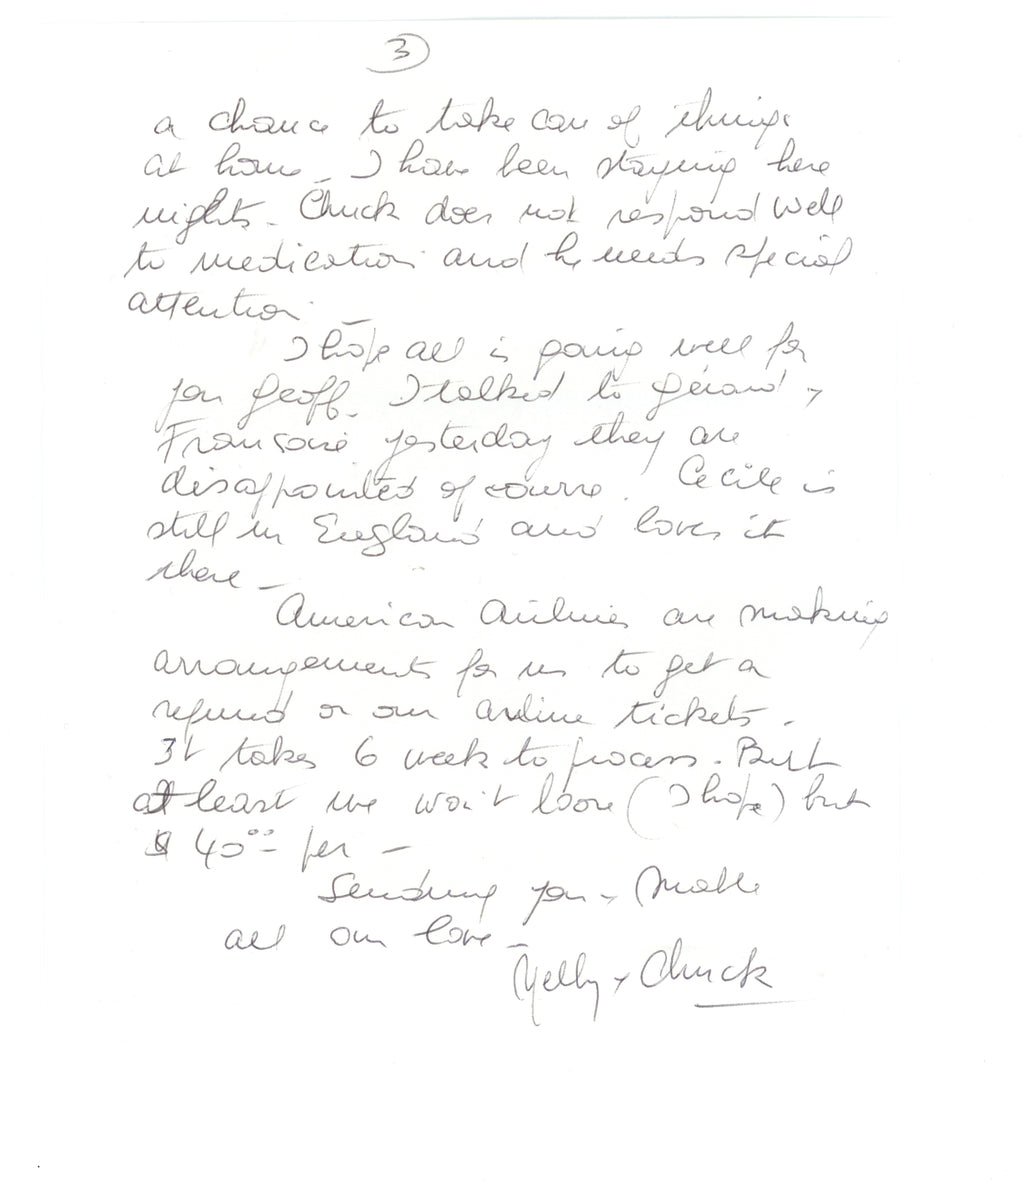 3
a chance to take care of things
at home _ I have been staying here
nights - Chuck does not respond well
to medication and he needs special
attention _
I hope all is going well for
you Geoff. I talked to Gérard +
Françoise yesterday they are
disappointed of course. Cecile is
still in England and loves it
there _
American Airlines are making
arrangements for us to get a
refund on our airline tickets.
It takes 6 week to process. But
at least we won't loose (I hope) but
$ 40.00 per _
Sending you +
all our love _
Nelly + Chuck